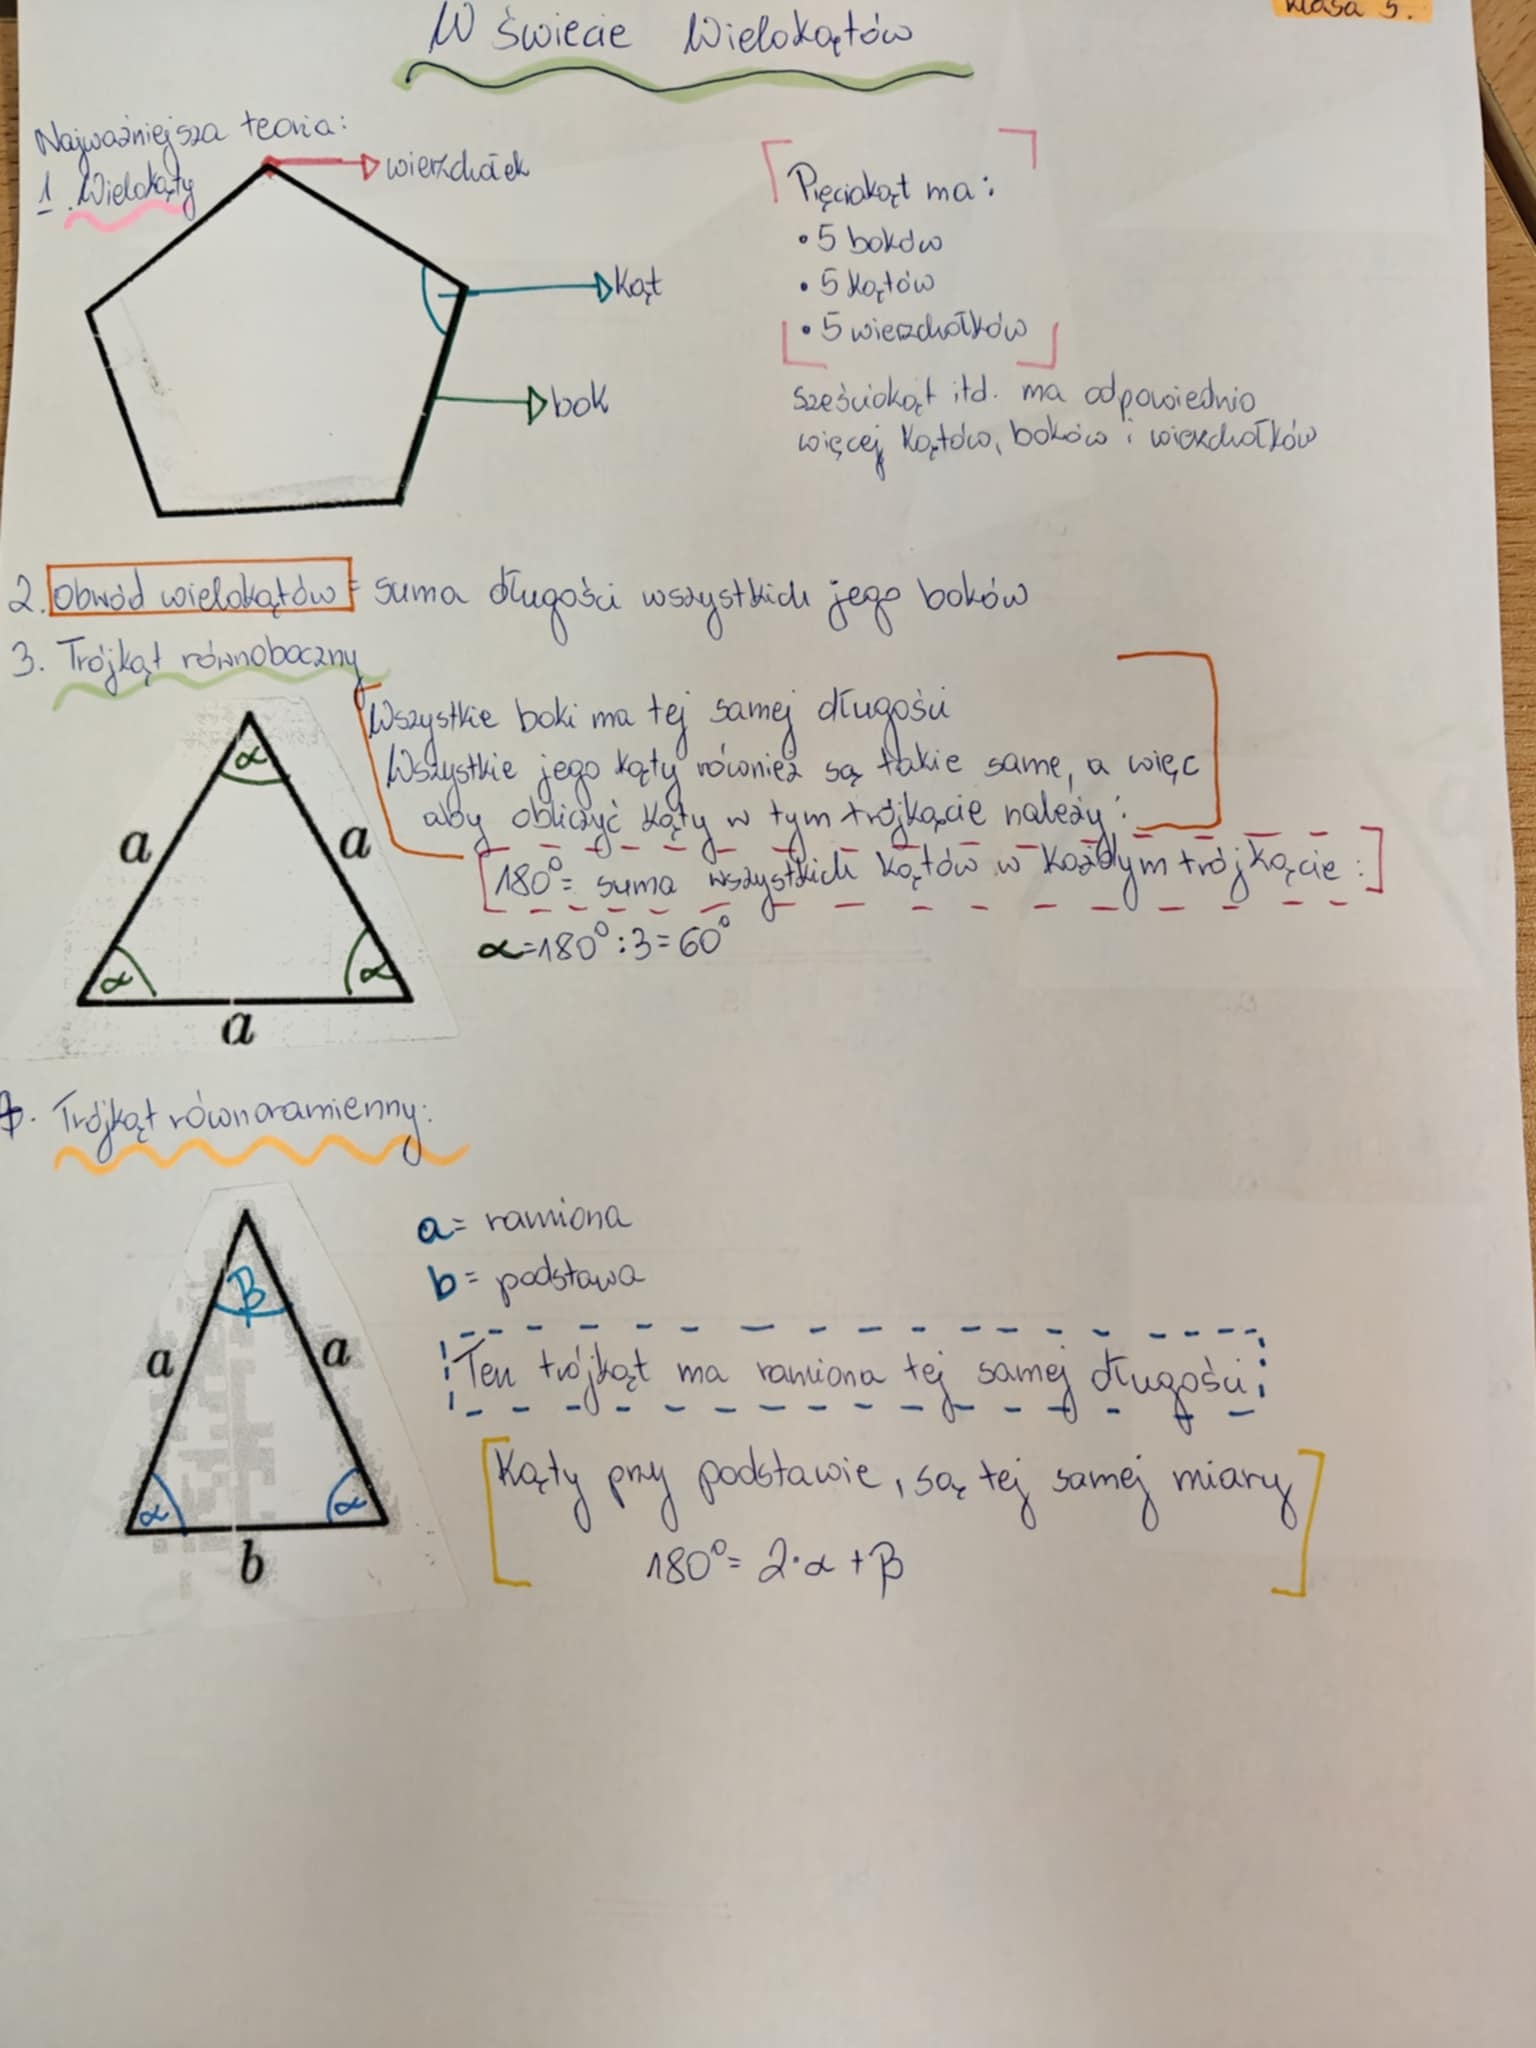 W świecie Wielokątów
klasa 5.
Najważniejsza teoria:
1. Wielokąty
wierzchołek
kąt
bok
Pięciokąt ma:
• 5 boków
• 5 kątów
• 5 wierzchołków
sześciokąt itd. ma odpowiednio
więcej kątów, boków i wierzchołków
2. Obwód wielokątów = suma długości wszystkich jego boków
3. Trójkąt równoboczny
Wszystkie boki ma tej samej długości
Wszystkie jego kąty również są takie same, a więc
aby obliczyć kąty w tym trójkącie należy:
180° = suma wszystkich kątów w każdym trójkącie :
α = 180° : 3 = 60°
α
a
a
α
α
a
4. Trójkąt równoramienny:
β
a
a
α
α
b
a = ramiona
b = podstawa
Ten trójkąt ma ramiona tej samej długości
Kąty przy podstawie, są tej samej miary
180° = 2·α + β